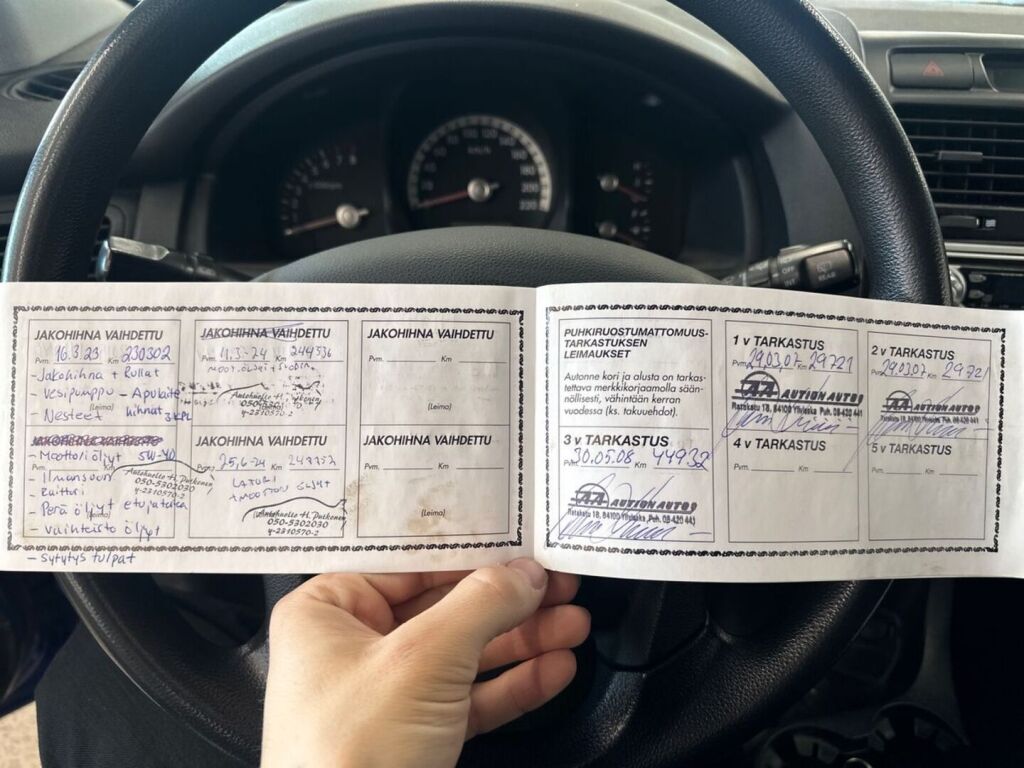 JAKOHIHNA VAIHDETTU
Pvm. 16.3.23 Km 230302
- Jakohihna + Rullat
- Vesipumppu - Apulaite
(Leima) hihnat 3KPL
- Nesteet
JAKOHIHNA VAIHDETTU
- Moottoriöljyt 5W-40
Pvm. Km
- Ilmansuon
- Raitis
- Perä öljyt etu/taka
- Vaihteisto öljyt
- Sytytys tulpat
Autohuolto H. Putkonen
050-5302030
Y-2310570-2
JAKOHIHNA VAIHDETTU
Pvm. 11.3-24 Km 244536
MOOT.ÖLJYT + SUODIN
Autohuolto
050-
Y-2310570-2
(Leima)
JAKOHIHNA VAIHDETTU
Pvm. 25.6-24 Km
LATURI
+ MOOTTORI ÖLJYT
Autohuolto H. Putkonen
050-5302030
Y-2310570-2
JAKOHIHNA VAIHDETTU
Pvm. Km
(Leima)
JAKOHIHNA VAIHDETTU
Pvm. Km
(Leima)
PUHKIRUOSTUMATTOMUUS-
TARKASTUKSEN
LEIMAUKSET
Autonne kori ja alusta on tarkas-
tettava merkkikorjaamolla sään-
nällisesti, vähintään kerran
vuodessa (ks. takuuehdot).
1 v TARKASTUS
Pvm. 29.03.07 Km 29721
AA AUTION AUTO
Ratakatu 18, 84100 Ylivieska Puh. 08-420 441
2 v TARKASTUS
Pvm. 29.03.07 Km 29721
AA AUTION AUTO
Ratakatu 18, 84100 Ylivieska, Puh. 08-420 441
3 v TARKASTUS
Pvm. 30.05.08 Km 44932
AA AUTION AUTO
Ratakatu 18, 84100 Ylivieska, Puh. 08-420 441
4 v TARKASTUS
Pvm. Km
5 v TARKASTUS
Pvm. Km
km/h
120
180
200
220
OFF
INT
REAR